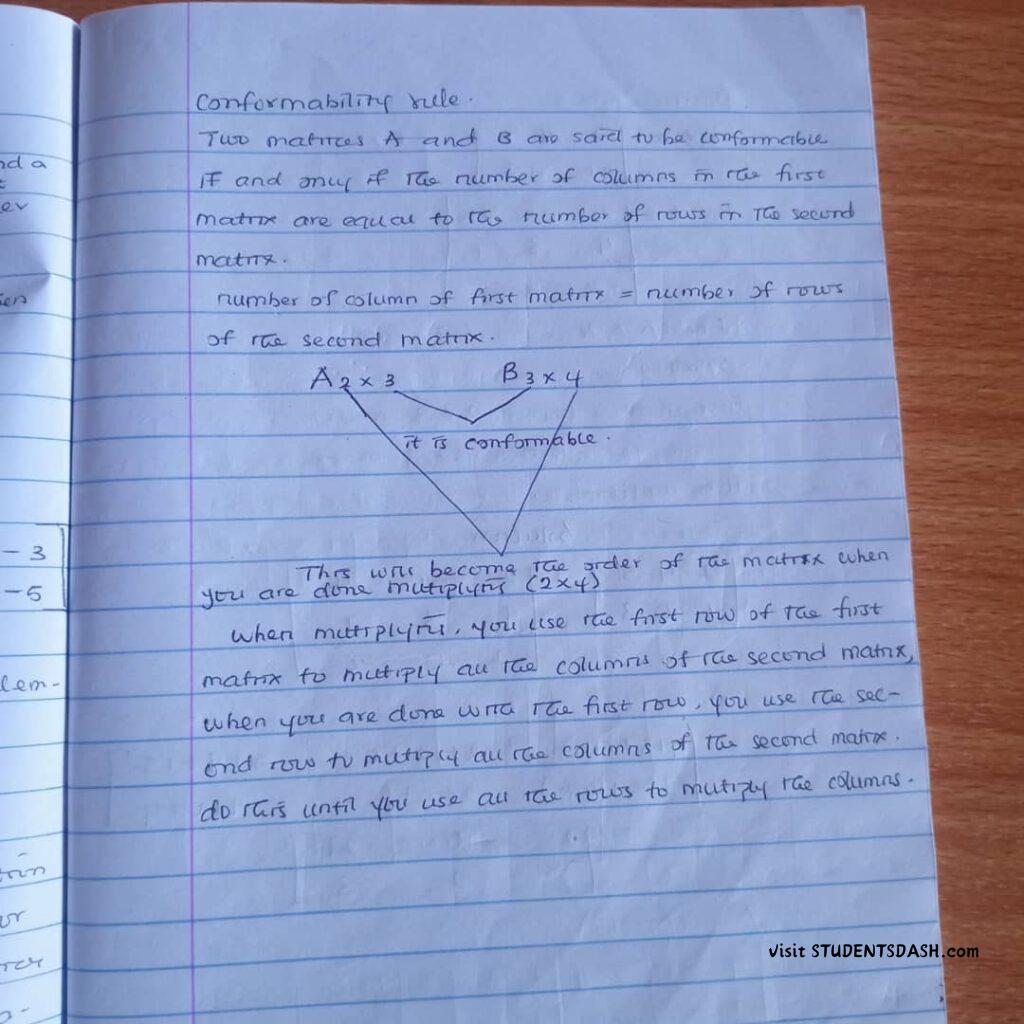 nd a
er
Conformability rule.
Two matrices A and B are said to be conformable
if and only if the number of columns in the first
matrix are equal to the number of rows in the second
matrix.
number of column of first matrix = number of rows
of the second matrix.
A 2 × 3 B 3 × 4
it is conformable.
This will become the order of the matrix when
you are done multiplying (2×4)
when multiplying, you use the first row of the first
matrix to multiply all the columns of the second matrix,
when you are done with the first row, you use the sec-
ond row to multiply all the columns of the second matrix.
do this until you use all the rows to multiply the columns.
- 3
- 5
lem-
or
visit STUDENTSDASH.com